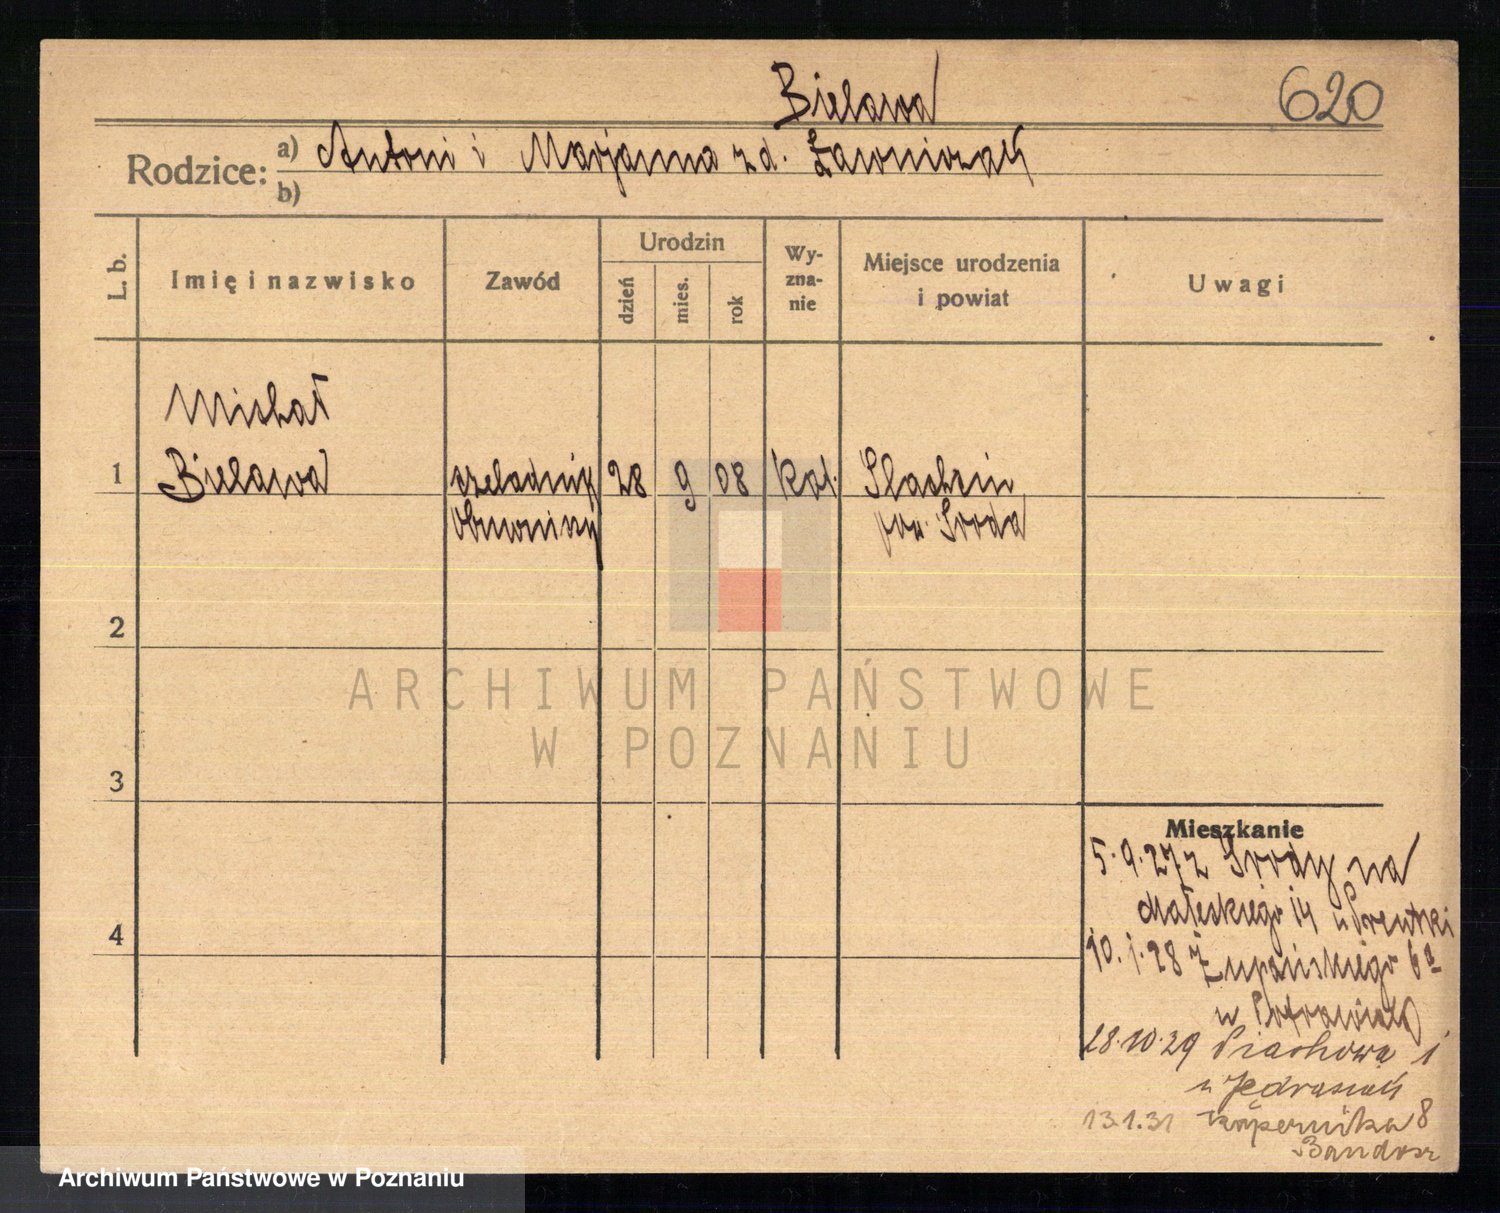 Bielawa
620
Rodzice: a) Antoni i Marjanna zd. Ławniczak
b)
L. b.
Imię i nazwisko
Zawód
Urodzin
dzień
mies.
rok
Wy-
zna-
nie
Miejsce urodzenia
i powiat
Uwagi
Michał
1 Bielawa czeladnik 28 9 08 kat. Slachcin
pow. Środa
2
3
4
Mieszkanie
5.9.27 z Środy na
Małeckiego 14 u
10.1.28 Żupańskiego 6a
u
28.10.29 Piaskowa 1
u Jędrasiak
13.1.31 Kopernika 8
Bandosz
ARCHIWUM PAŃSTWOWE
W POZNANIU
Archiwum Państwowe w Poznaniu